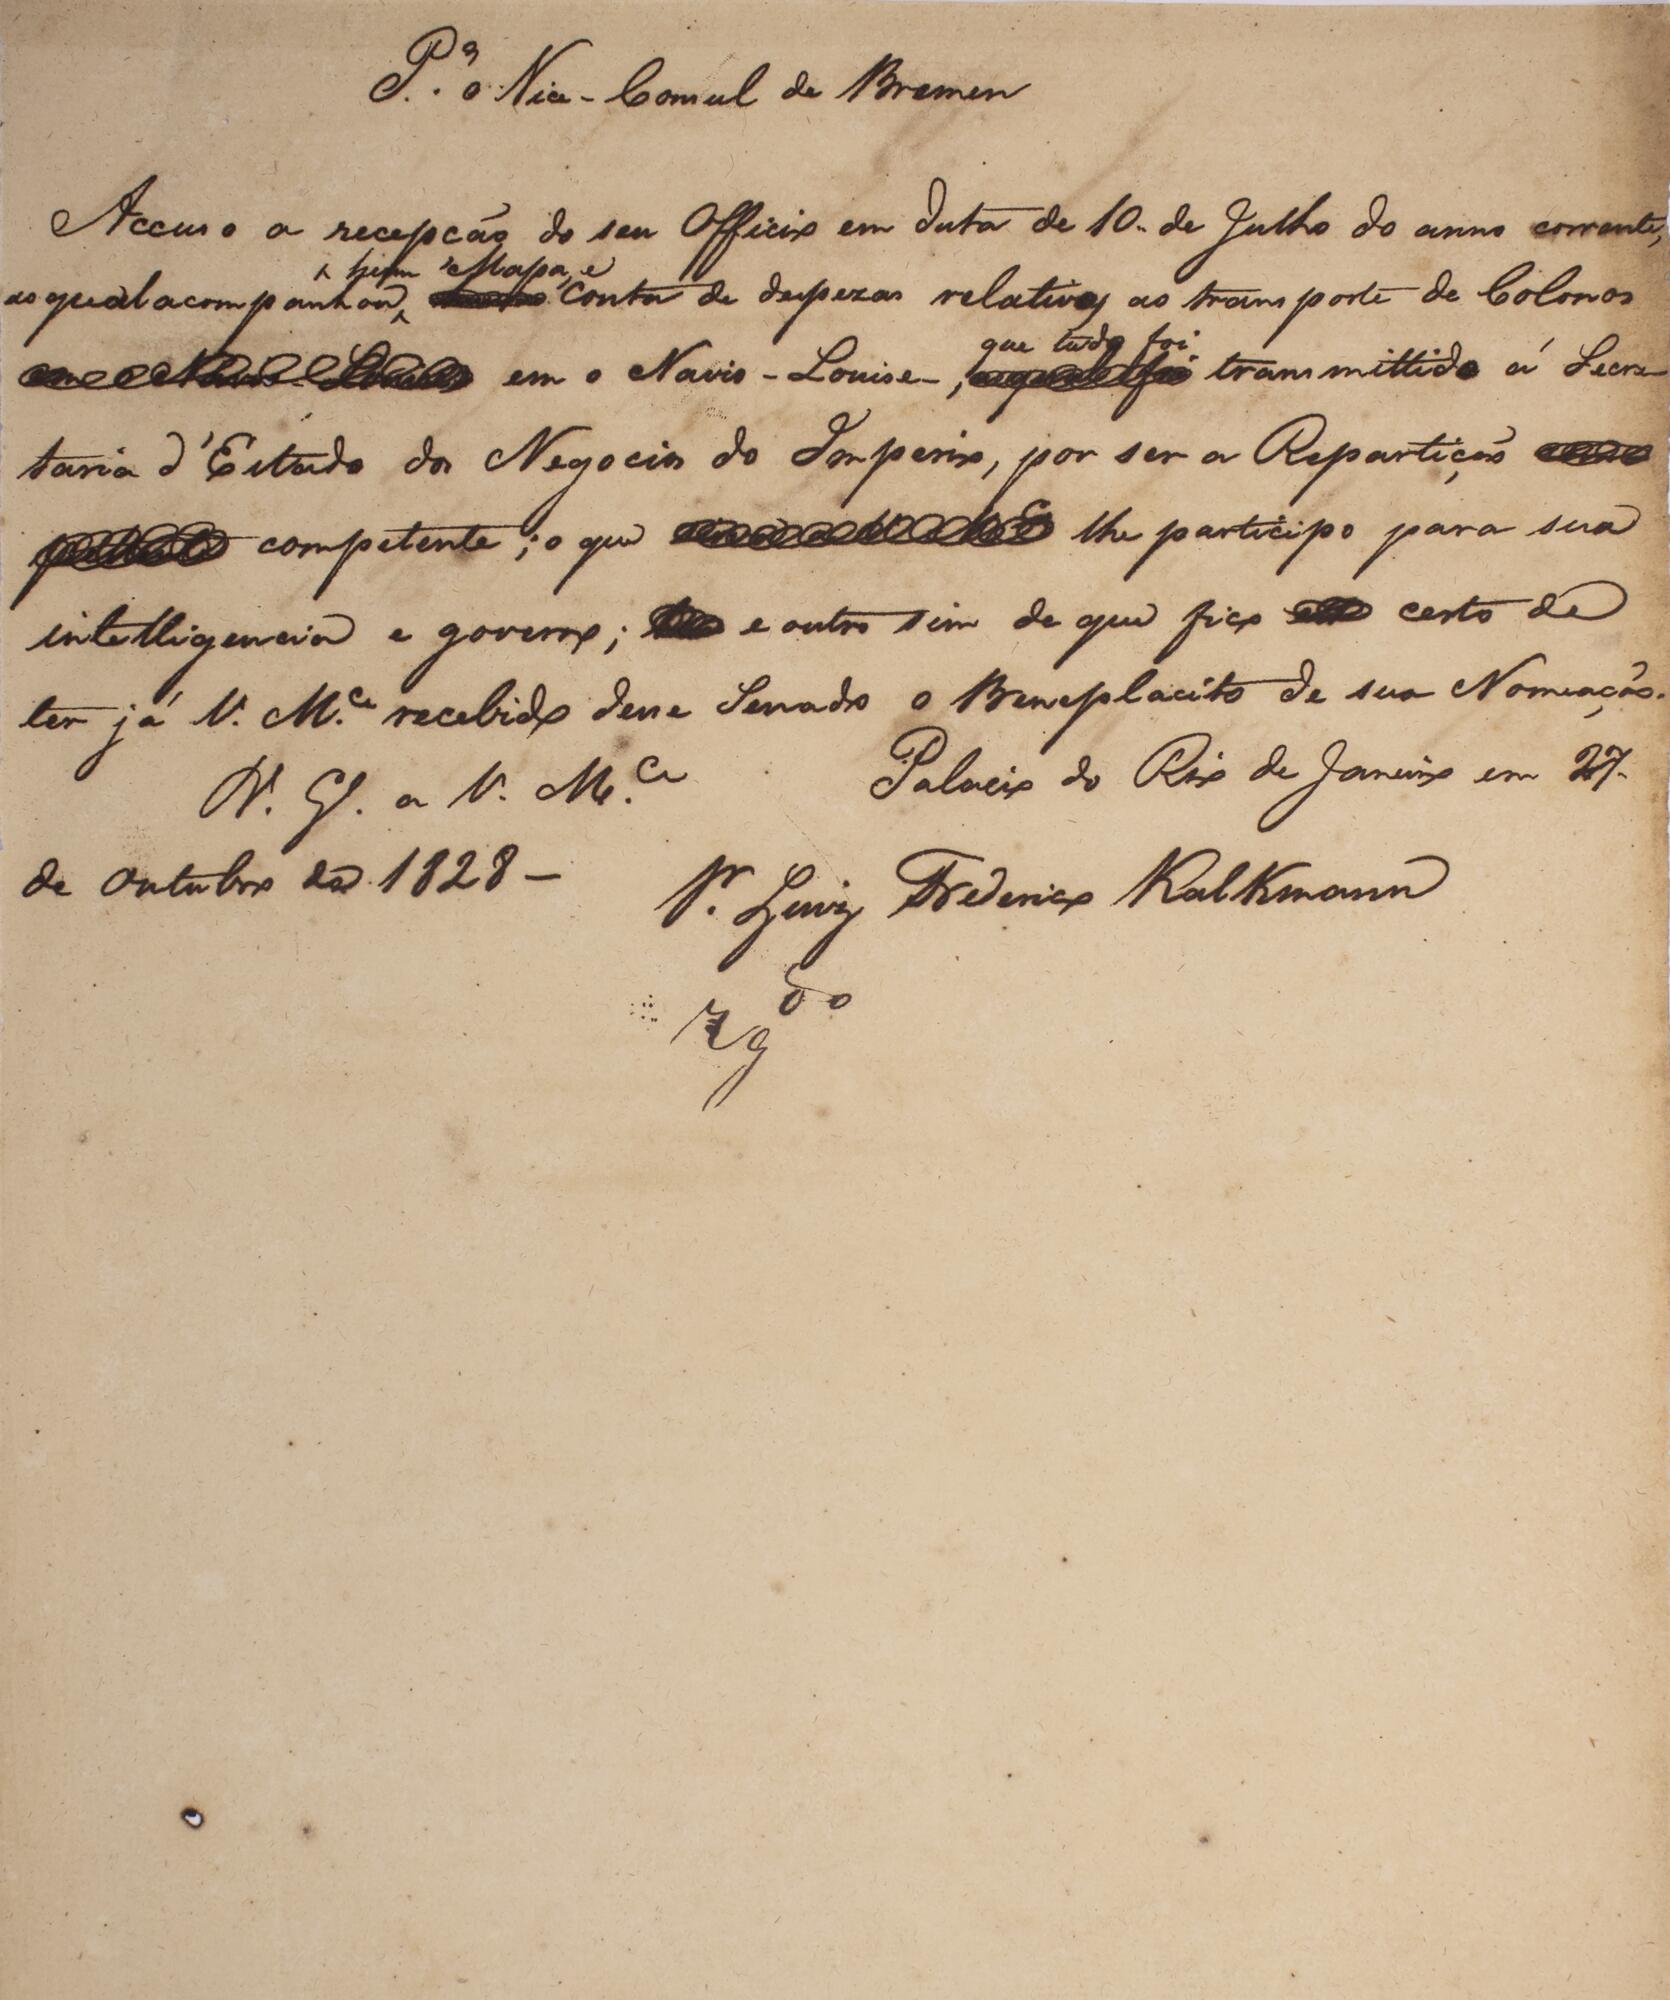 P.ª o Vice-Consul de Bremen
Accuso a recepção do seu Officio em data de 10. de Julho do anno corrente,
ao qual acompanhou, hum Mapa, e Conta de despezas relativos ao transporte de Colonos
em o Navio - Louise -, que tudo foi transmittido á Secre
taria d'Estado dos Negocios do Imperio, por ser a Repartição
competente; o que lhe participo para sua
intelligencia e governo; e outro sim de que fico certo de
ter já V. M.ce recebido desse Senado o Beneplacito de sua Nomeação.
D. G. a V. M.ce Palacio do Rio de Janeiro em 27.
de Outubro de 1828 -
Sr. Luiz Frederico Kalkmann